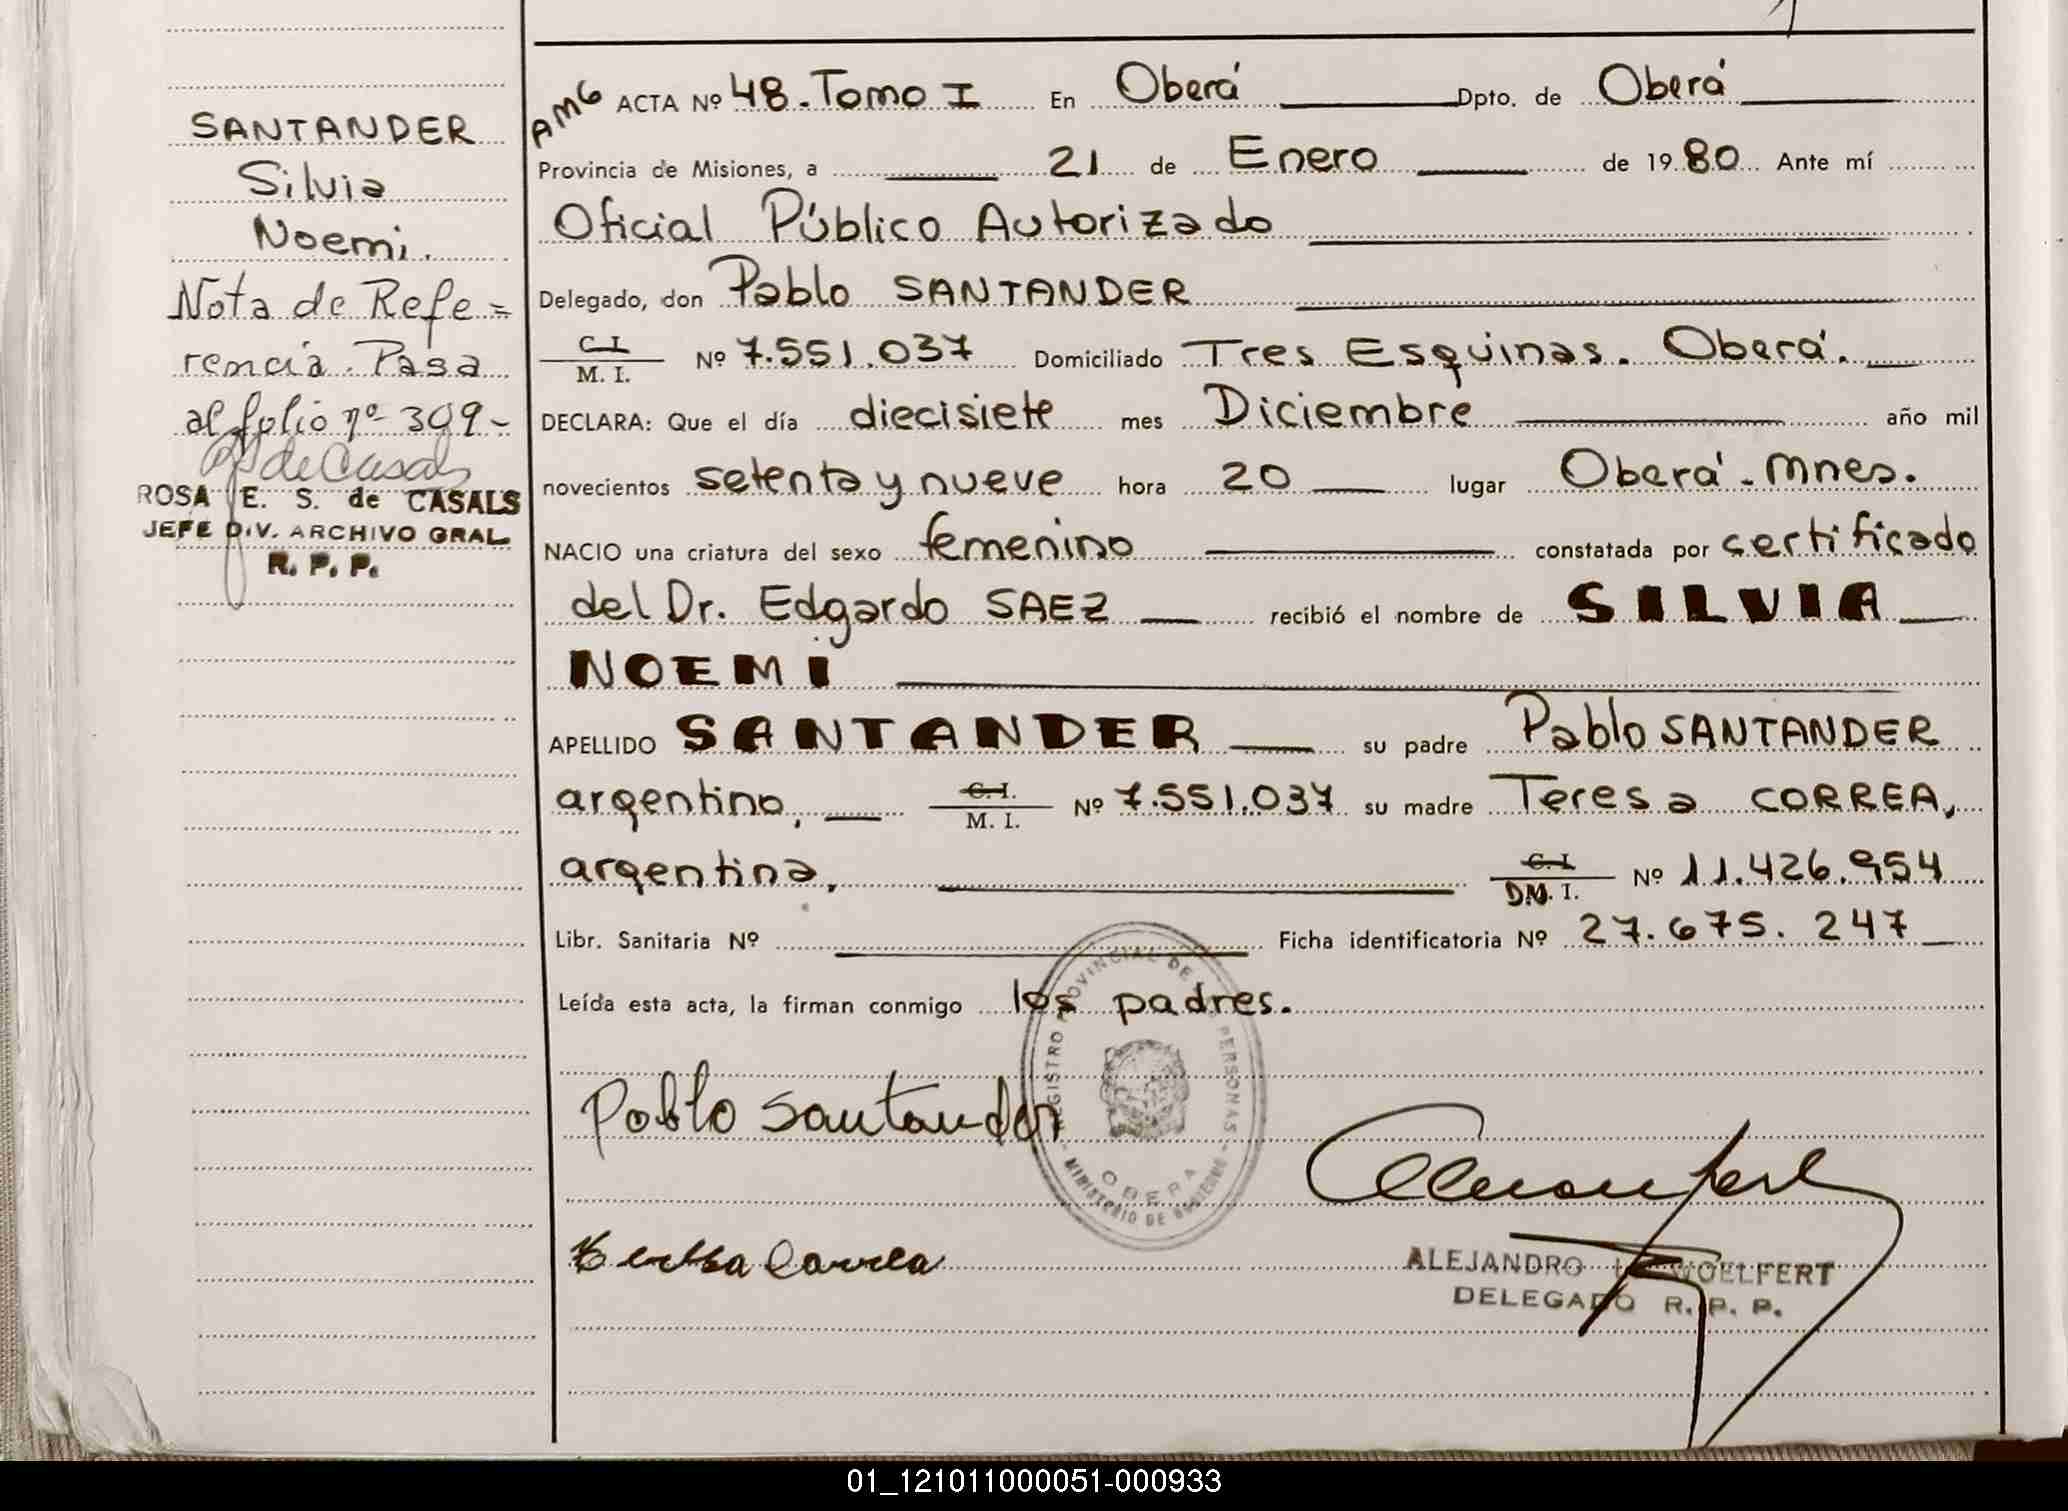 SANTANDER
Silvia
Noemi.
Nota de Refe=
rencia. Pasa
al folio nº 309-
ROSA E. S. de CASALS
JEFE DIV. ARCHIVO GRAL
R. P. P.
AMG ACTA Nº 48. Tomo I En Oberá Dpto. de Oberá
Provincia de Misiones, a 21 de Enero de 1980 Ante mí
Oficial Público Autorizado
Delegado, don Pablo SANTANDER
C I
M. I. Nº 7.551.037 Domiciliado Tres Esquinas. Oberá.
DECLARA: Que el día diecisiete mes Diciembre año mil
novecientos setenta y nueve hora 20 lugar Oberá - mnes.
NACIO una criatura del sexo femenino constatada por certificado
del Dr. Edgardo SAEZ recibió el nombre de SILVIA
NOEMI
APELLIDO SANTANDER su padre Pablo SANTANDER
argentino, C.I.
M. I. Nº 7.551.037 su madre Teresa CORREA,
argentina, C I
D.N. I. Nº 11.426.954
Libr. Sanitaria Nº Ficha identificatoria Nº 27.675.247
Leída esta acta, la firman conmigo los padres.
REGISTRO PROVINCIAL DE LAS PERSONAS
MINISTERIO DE GOBIERNO
OBERA
Pablo Santander
Correa
ALEJANDRO WOELFERT
DELEGADO R. P. P.
01_121011000051-000933